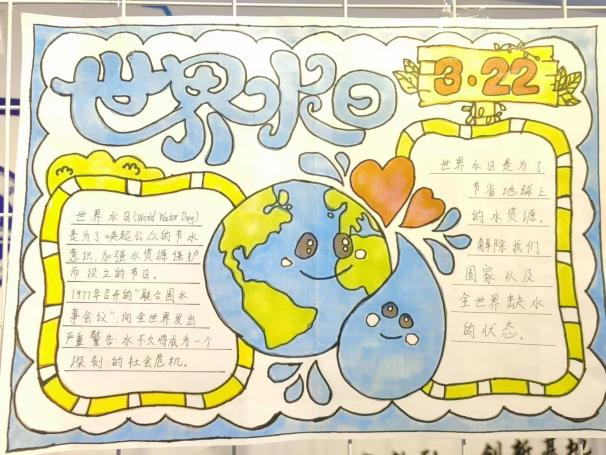 世界水日
3·22
世界水日(World Water Day)
是为了唤起公众的节水
意识,加强水资源保护
而设立的节日。
1977年召开的"联合国水
事会议",向全世界发出
严重警告:水不久将成为一个
深刻的社会危机。
世界水日是为了
节省地球上
的水资源,
解除我们
国家以及
全世界缺水
的状态。